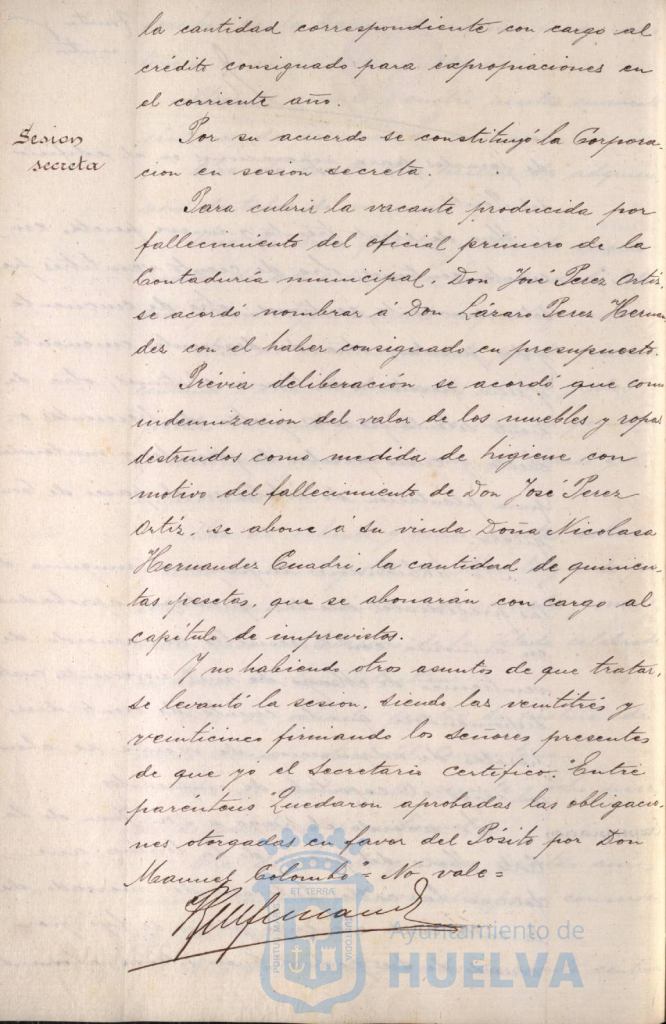 la cantidad correspondiente con cargo al
crédito consignado para expropiaciones en
el corriente año.
Sesion
secreta
Por su acuerdo se constituyó la Corpora-
cion en sesion secreta.
Para cubrir la vacante producida por
fallecimiento del oficial primero de la
Contaduría municipal, Don José Perez Ortíz,
se acordó nombrar á Don Lázaro Perez Hernan
dez con el haber consignado en presupuesto.
Prévia deliberación se acordó que como
indemnizacion del valor de los muebles y ropas
destruidos como medida de higiene con
motivo del fallecimiento de Don José Perez
Ortíz, se abone á su viuda Doña Nicolasa
Hernandez Cuadri, la cantidad de quinien-
tas pesetas, que se abonarán con cargo al
capítulo de imprevistos.
Y no habiendo otros asuntos de que tratar,
se levantó la sesion, siendo las veintitrés y
veinticinco firmando los señores presentes
de que yo el Secretario certifico. "Entre
paréntesis "Quedaron aprobadas las obligacio-
nes otorgadas en favor del Pósito por Don
Manuel Colombo" = No vale =
PORTUS MARIS ET TERRÆ CUSTODIA
Ayuntamiento de
HUELVA